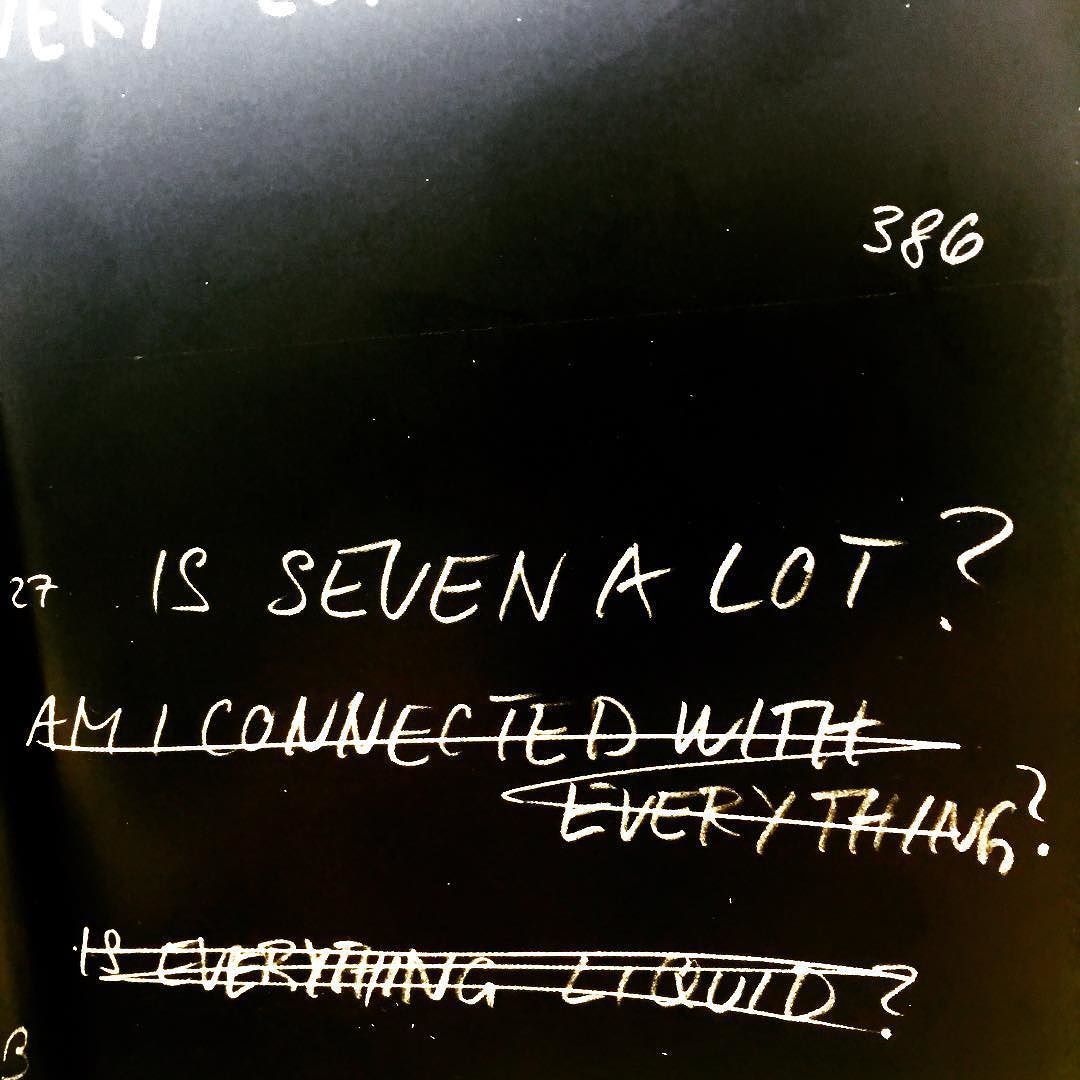 386
27 IS SEVEN A LOT?
AM I CONNECTED WITH
EVERYTHING?
IS EVERYTHING LIQUID?